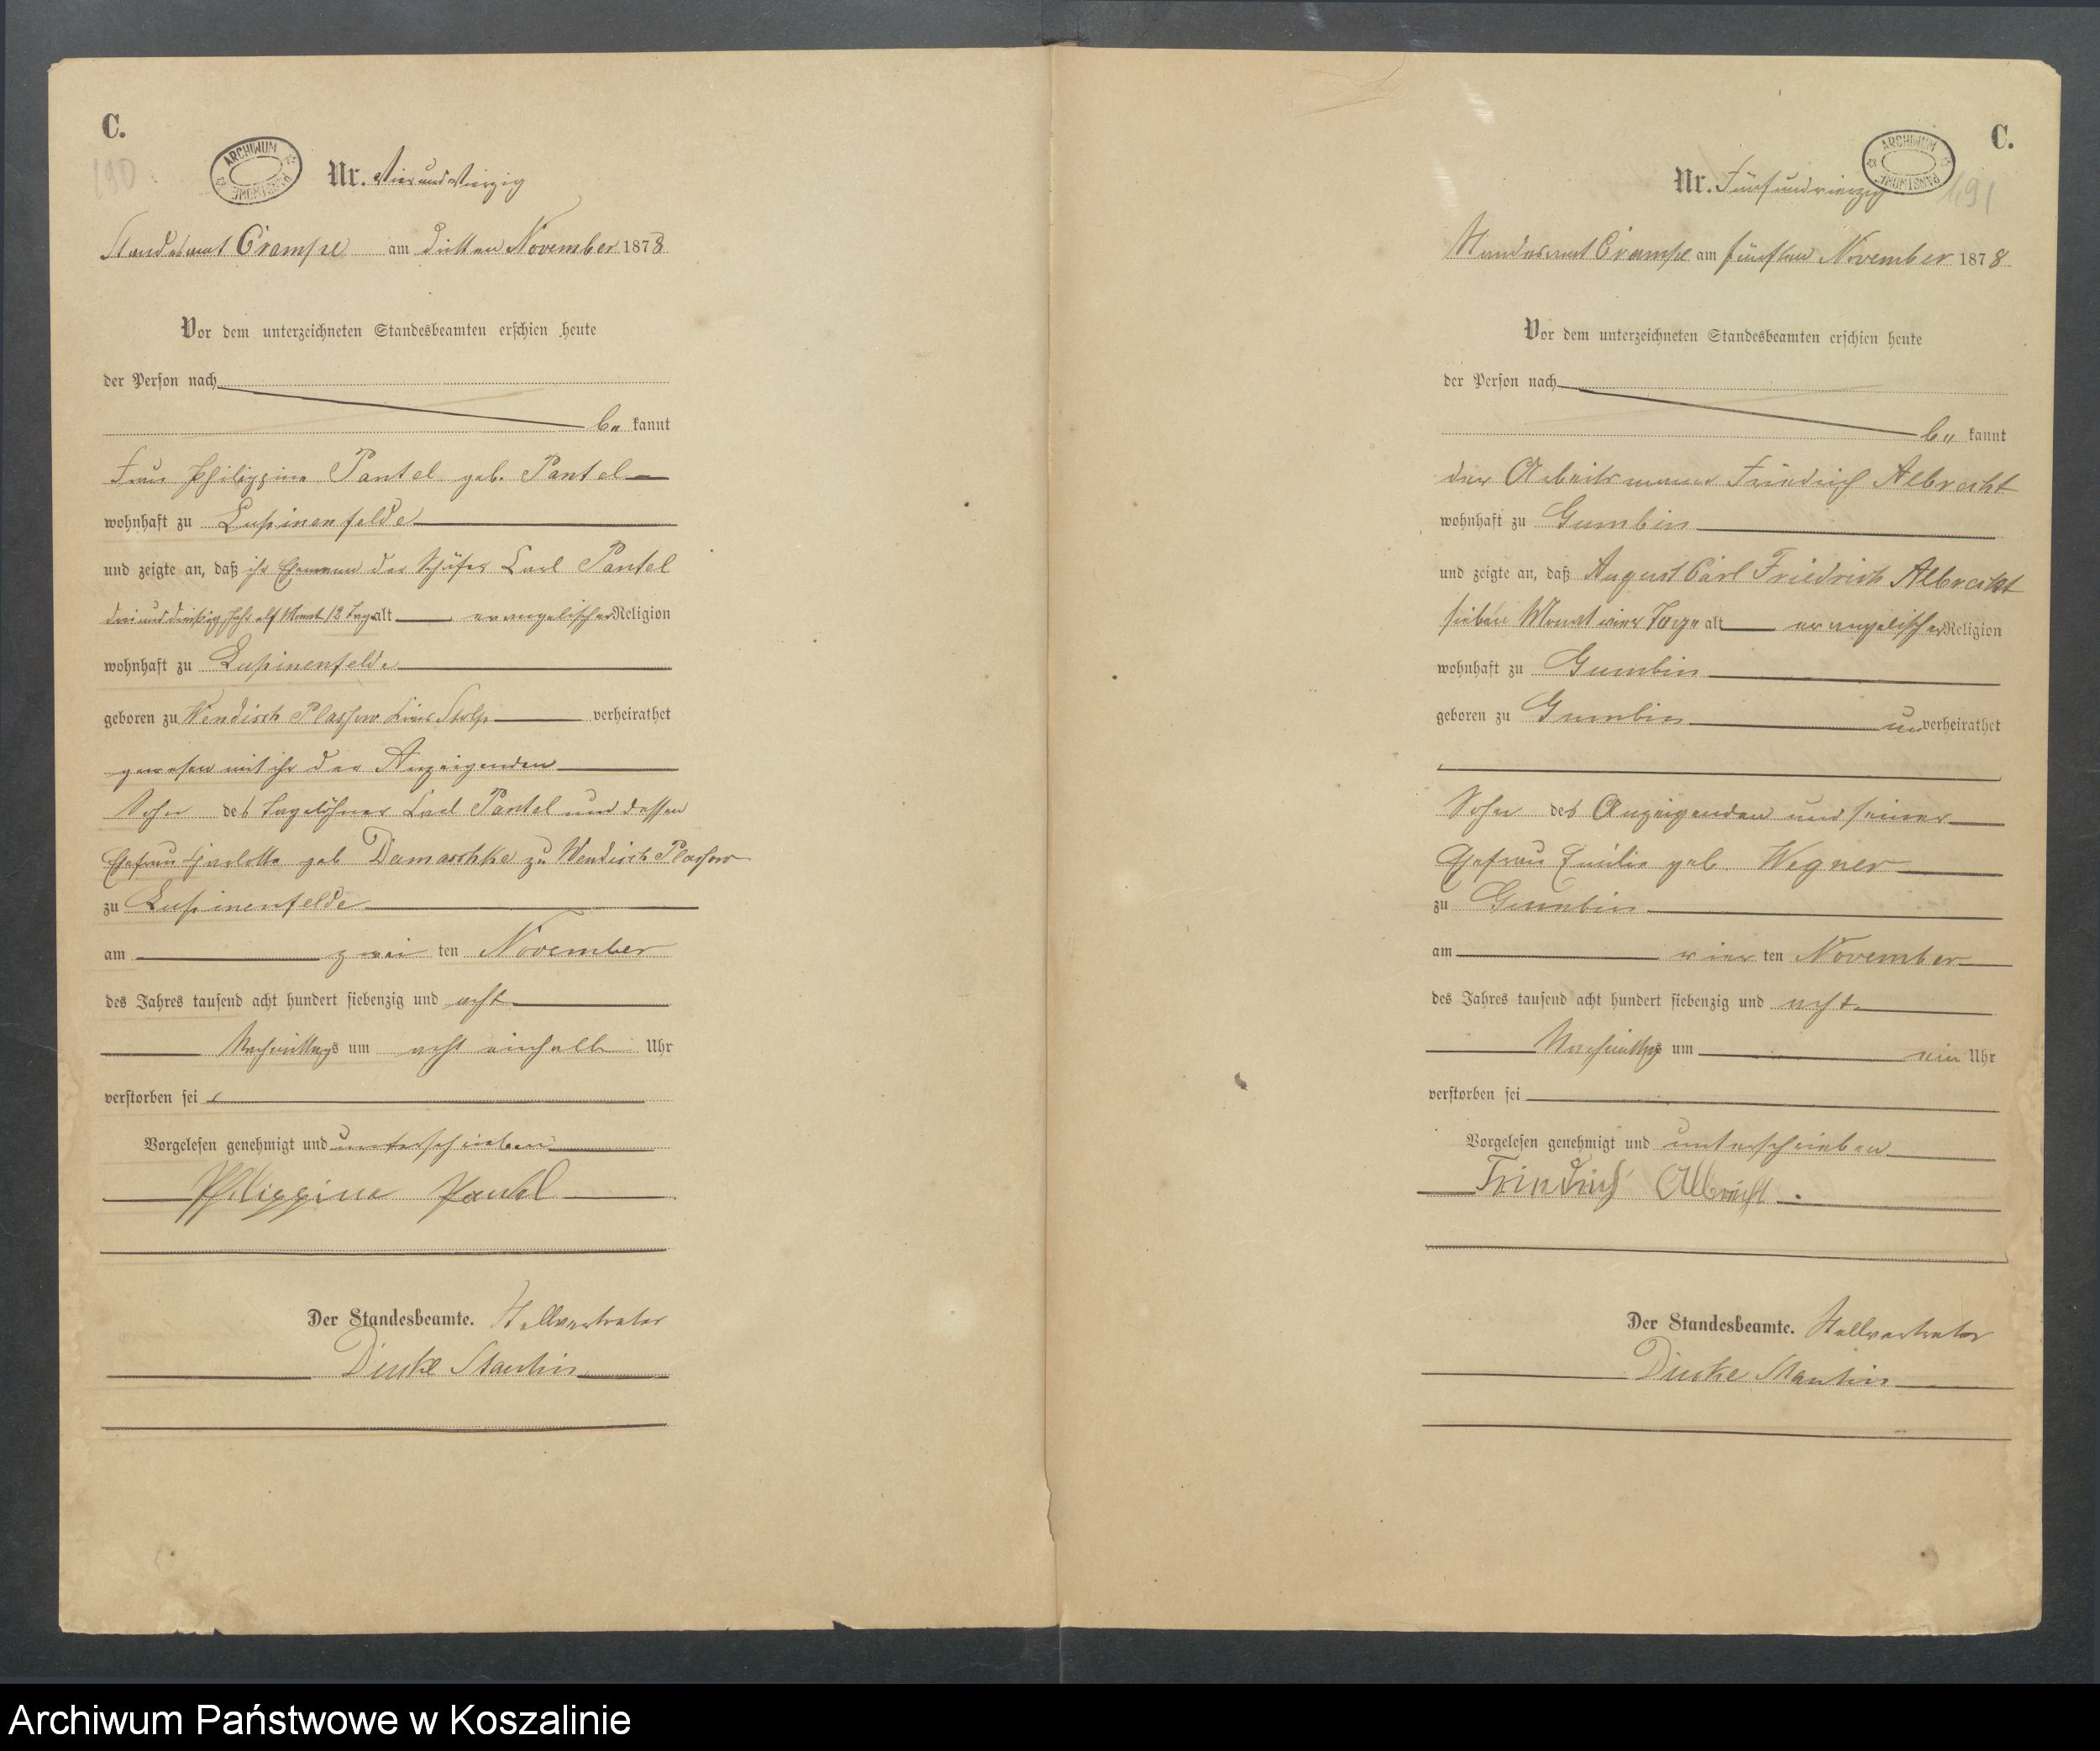 C.
190
ARCHIWUM PAŃSTWOWE
Nr. Vierundvierzig
Standesamt Crampe am dritten November 1878
Vor dem unterzeichneten Standesbeamten erschien heute
der Person nach
be kannt
Frau Philippine Pantel geb. Pantel
wohnhaft zu Lupinenfelde
und zeigte an, daß ihr Ehemann der Schäfer Carl Pantel
drei und dreißig Jahr elf Monat 12 Tage alt evangelischer Religion
wohnhaft zu Lupinenfelde
geboren zu Wendisch Plassow Kreis Stolp verheirathet
gewesen mit ihr der Anzeigenden
Sohn des Tagelöhner Carl Pantel und dessen
Ehefrau Charlotte geb Damaschke zu Wendisch Plassow
zu Lupinenfelde
am zwei ten November
des Jahres tausend acht hundert siebenzig und acht
Nachmittags um acht einhalb Uhr
verstorben sei
Vorgelesen genehmigt und unterschrieben
Philippine Pantel
Der Standesbeamte. Stellvertreter
C.
ARCHIWUM PAŃSTWOWE
191
Nr. Fünfundvierzig
Standesamt Crampe am fünften November 1878
Vor dem unterzeichneten Standesbeamten erschien heute
der Person nach
be kannt
der Arbeitsmann Friedrich Albrecht
wohnhaft zu Gumbin
und zeigte an, daß August Carl Friedrich Albrecht
sieben Monat vier Tage alt evangelischer Religion
wohnhaft zu Gumbin
geboren zu Gumbin unverheirathet
Sohn des Anzeigenden und seiner
Ehefrau Emilie geb. Wegner
zu Gumbin
am vier ten November
des Jahres tausend acht hundert siebenzig und acht
Nachmittags um ein Uhr
verstorben sei
Vorgelesen genehmigt und unterschrieben
Friedrich Albrecht.
Der Standesbeamte. Stellvertreter
Archiwum Państwowe w Koszalinie